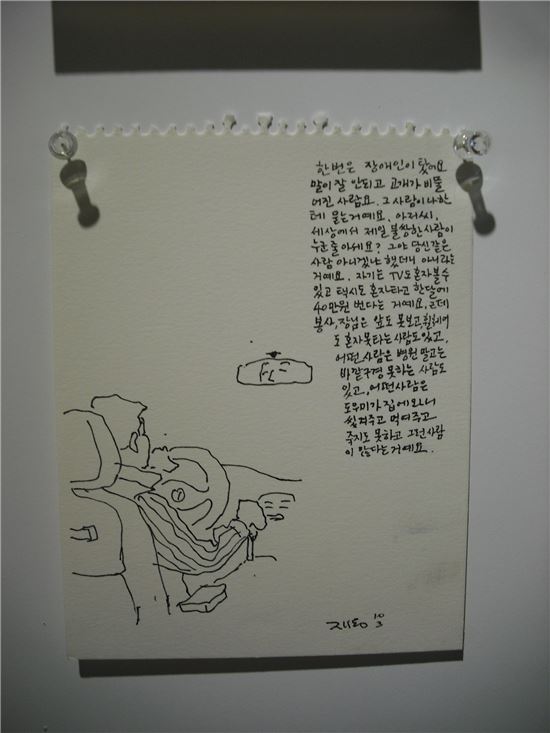 한번은 장애인이 탔어요
말이 잘 안되고 고개가 비뚤
어진 사람요. 그 사람이 나한
테 묻는거예요. 아저씨,
세상에서 제일 불쌍한 사람이
누군줄 아세요? 그야 당신같은
사람 아니겠냐 했더니 아니라는
거예요. 자기는 TV도 혼자 볼수
있고 택시도 혼자타고 한달에
40만원 번다는 거예요. 근데
봉사, 장님은 앞도 못보고, 휠체어
도 혼자 못타는 사람도 있고,
어떤 사람은 병원 말고는
바깥구경 못하는 사람도
있고, 어떤사람은
도우미가 집에 와서
씻겨주고 먹여주고
죽지도 못하고 그런 사람
이 많다는 거예요.
재동 10
3